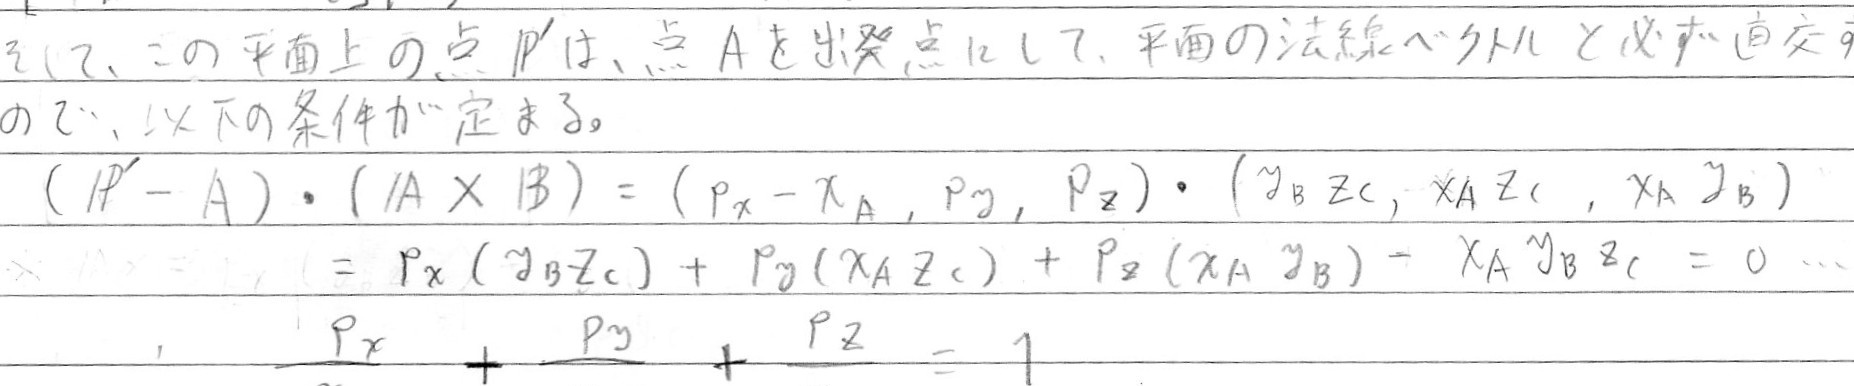 そして、この平面上の点P'は、点Aを出発点にして、平面の法線ベクトルと必ず直交す
ので、以下の条件が定まる。
(P'-A)・(A×B)=(Px-xA, Py, Pz)・(yB zC, xA zC, xA yB)
=Px(yB zC)+Py(xA zC)+Pz(xA yB)-xA yB zC=0 …
Px + Py + Pz = 1